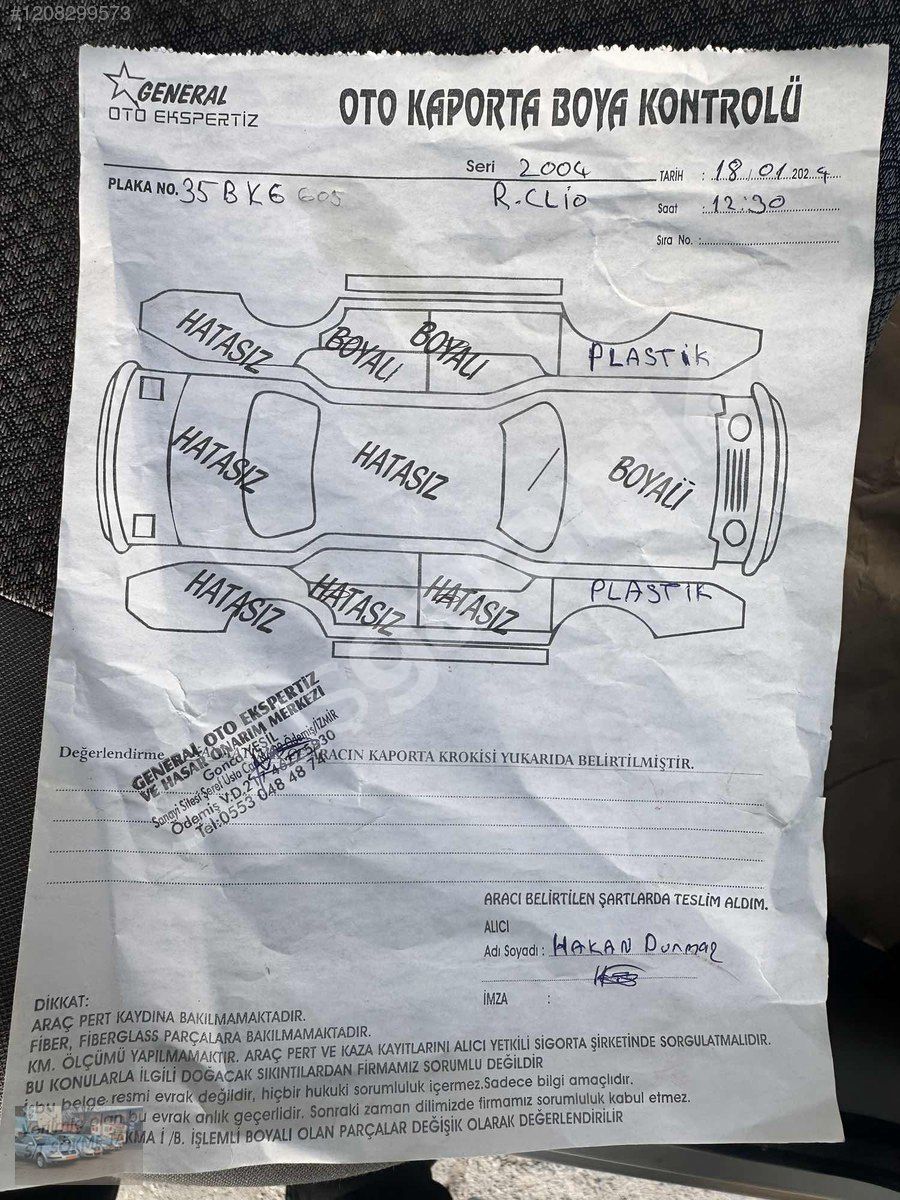 #1208299573
GENERAL
OTO EKSPERTİZ
OTO KAPORTA BOYA KONTROLÜ
Seri 2004
TARİH : 18/01 2024
PLAKA NO. 35 BKG 605
R.CLİO
Saat : 12:30
Sıra No. :
HATASIZ
BOYALI
BOYALI
PLASTİK
HATASIZ
HATASIZ
BOYALI
HATASIZ
HATASIZ
HATASIZ
PLASTİK
Değerlendirme
ARACIN KAPORTA KROKİSİ YUKARIDA BELİRTİLMİŞTİR.
GENERAL OTO EKSPERTİZ
VE HASAR ONARIM MERKEZİ
Gonca YEŞİL
Sanayi Sitesi Şeref Usta Ödemiş/İZMİR
Ödemiş V.D.
Tel:0553 048 48 74
ARACI BELİRTİLEN ŞARTLARDA TESLİM ALDIM.
ALICI
Adı Soyadı : HAKAN Durmaz
İMZA :
DİKKAT:
ARAÇ PERT KAYDINA BAKILMAMAKTADIR.
FİBER, FİBERGLASS PARÇALARA BAKILMAMAKTADIR.
KM. ÖLÇÜMÜ YAPILMAMAKTIR. ARAÇ PERT VE KAZA KAYITLARINI ALICI YETKİLİ SİGORTA ŞİRKETİNDE SORGULATMALIDIR.
BU KONULARLA İLGİLİ DOĞACAK SIKINTILARDAN FİRMAMIZ SORUMLU DEĞİLDİR
İşbu belge resmi evrak değildir, hiçbir hukuki sorumluluk içermez.Sadece bilgi amaçlıdır.
olan bu evrak anlık geçerlidir. Sonraki zaman dilimizde firmamız sorumluluk kabul etmez.
TAKMA İ /B. İŞLEMLİ BOYALI OLAN PARÇALAR DEĞİŞİK OLARAK DEĞERLENDİRİLİR